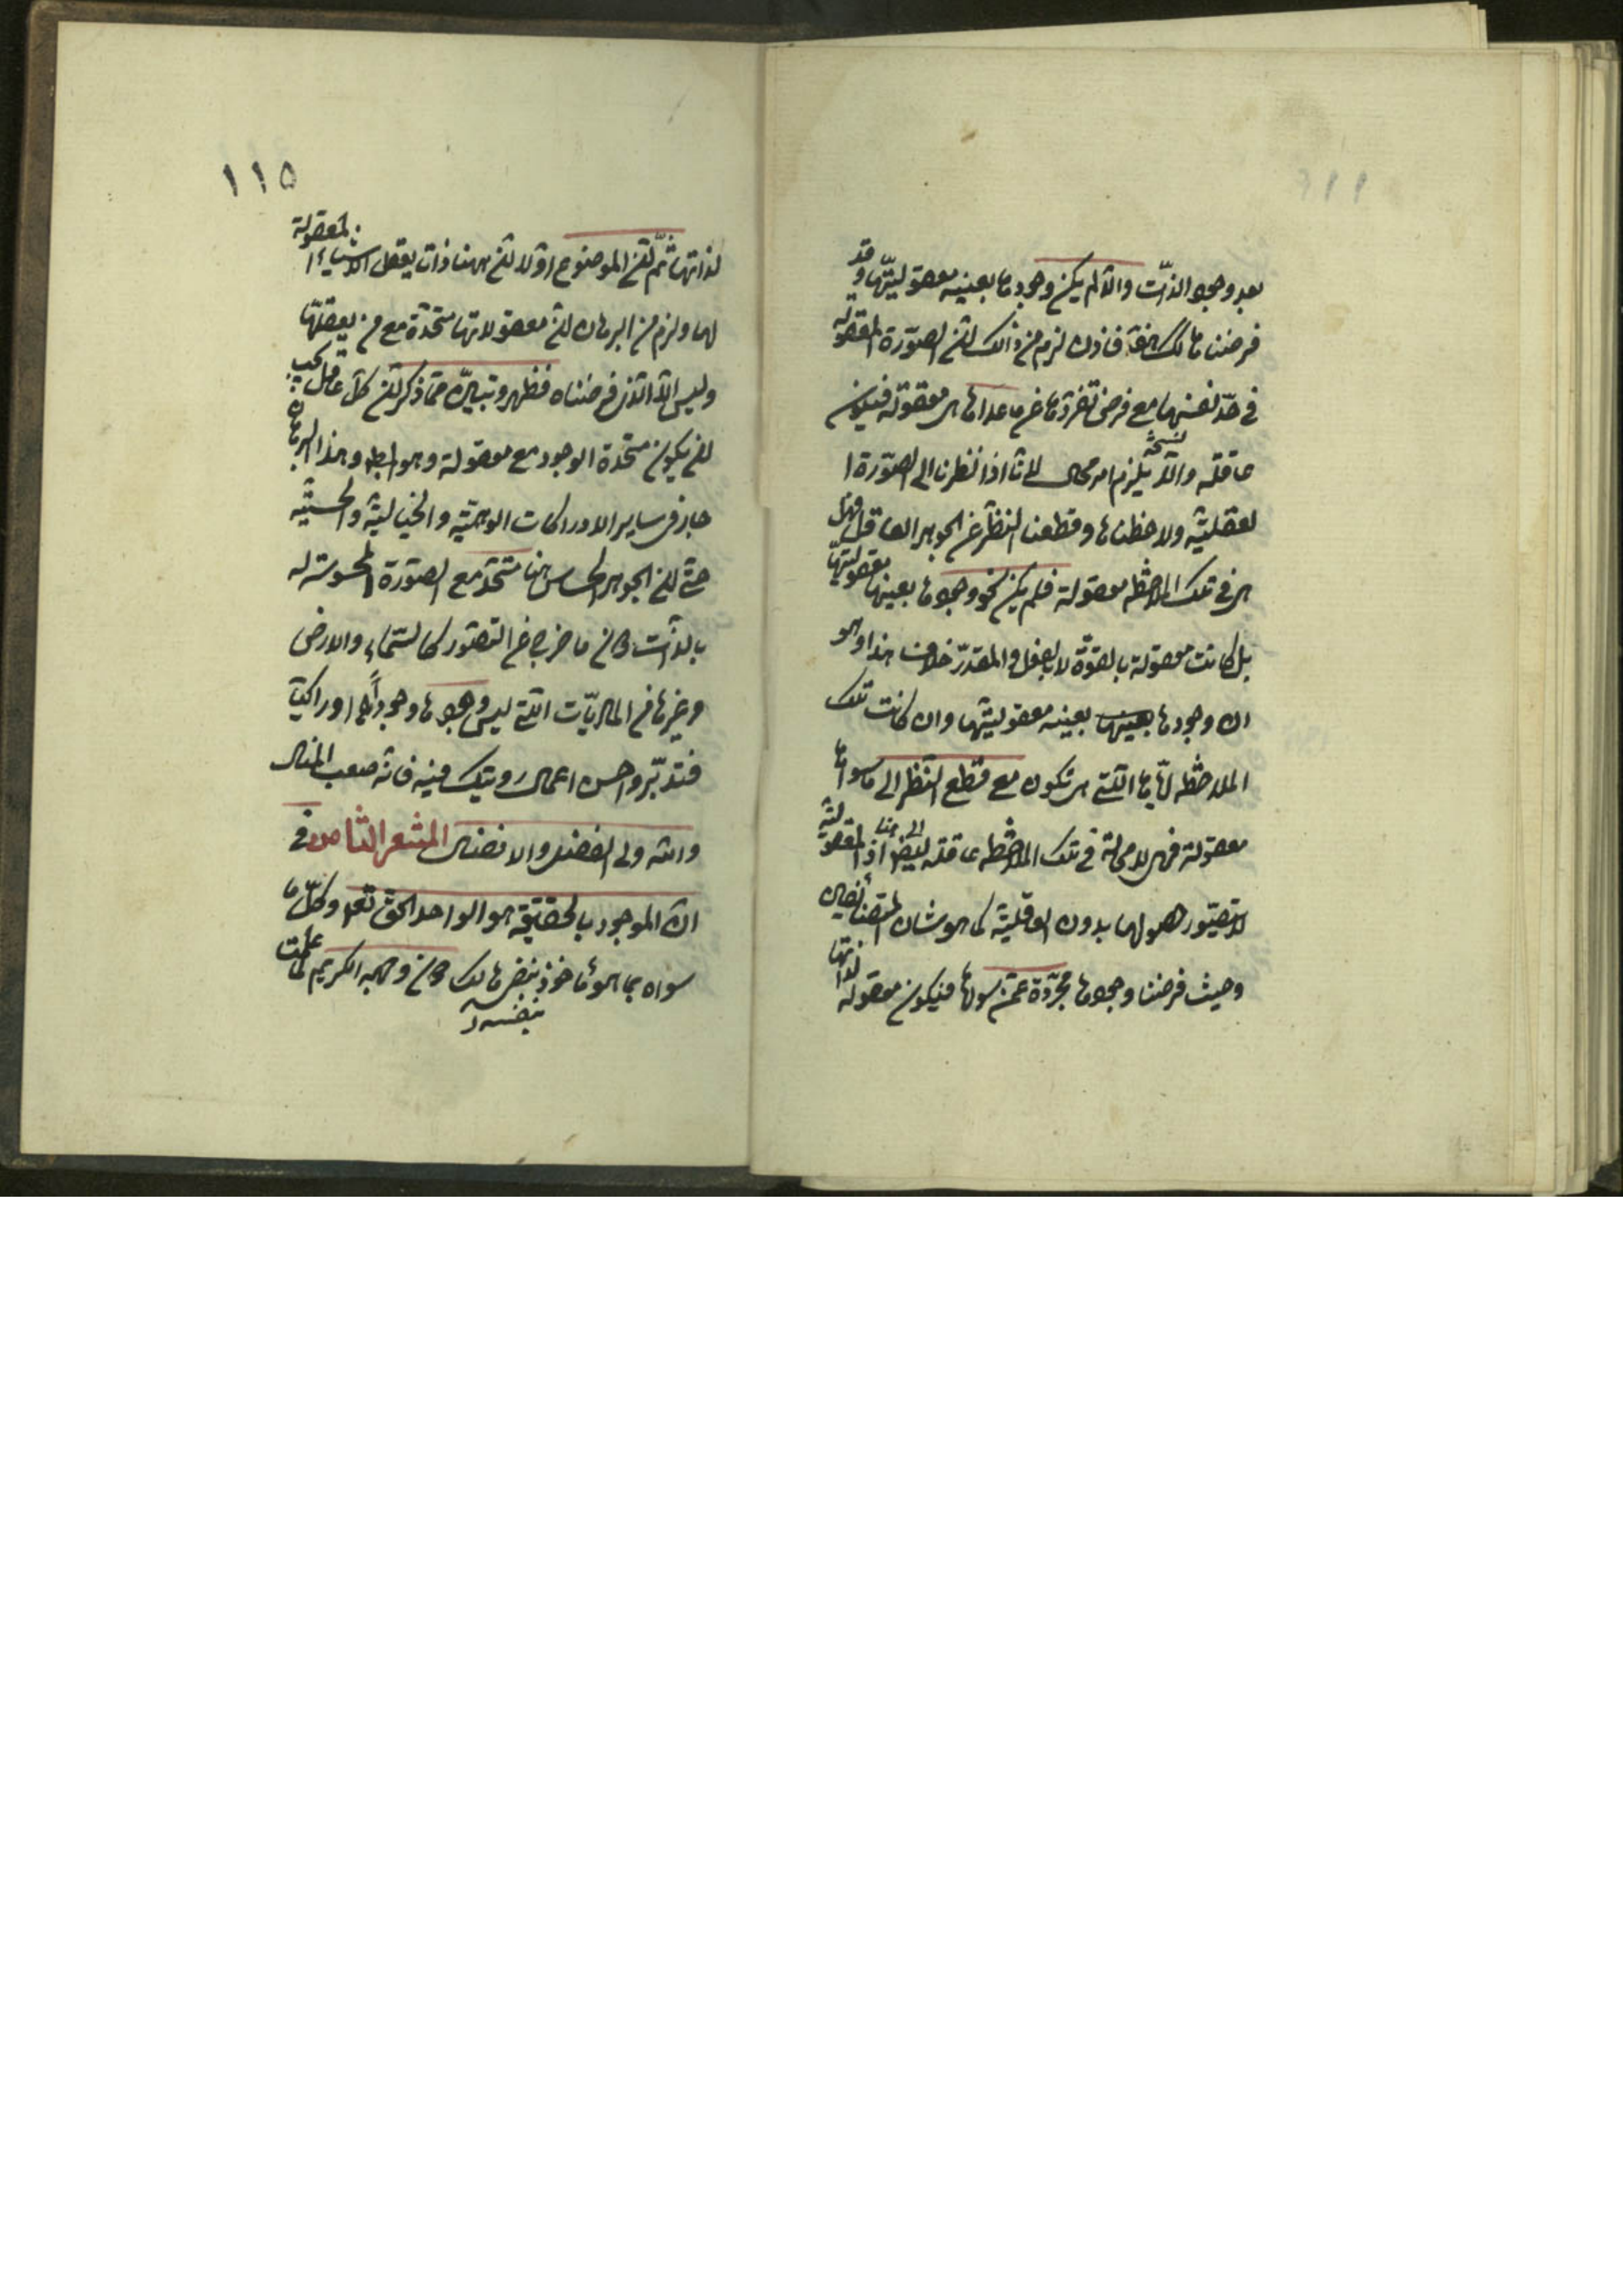 بعد وجود الذات والا لم يكن وجودها بعينه معقوليتها وقد
فرضناها كذلك هف فاذن لزم من ذلك ان الصورة المعقولة
في حد نفسها مع فرض تفردها عن ماعداها هي معقولة فيكون
عاقلة والا يلزم امر محال لانا اذا نظرنا الى الصورة ا
لعقلية ولاحظناها وقطعنا النظر عن الجوهر العاقل فهل
هي في تلك الملاحظة معقولة فلم يكن نحو وجودها بعينها معقوليتها
بل كانت معقولة بالقوة لا بالفعل والمقدر خلاف هذا وهو
ان وجودها بعينه معقوليتها وان كانت تلك
الملاحظة اياها التي هي تكون مع قطع النظر الى ماسواها
معقولة فهي لا محالة في تلك الملاحظة عاقلة ايضا اذ المعقولية
لا يتصور حصولها بدون العاقلية كما هو شان المتضائفين
وحيث فرضنا وجودها مجردة عمن سواها فيكون معقولة لذاتها
١١٥
لذاتها ثم ان الموضوع اولا ان ههنا ذات يعقل الاشياء المعقولة
لها ولزم من البرهان ان معقولاتها متحدة مع من يعقلها
وليس الا الذي فرضناه فظهر وتبين مما ذكر ان كل عاقل يجب
ان يكون متحدة الوجود مع معقولة وهو المط وهذا البرهان
جار في ساير الادراكات الوهمية والخيالية والحسية
حتى ان الجوهر الحساس هنا متحد مع الصورة المحسوسة له
بالذات دون ما خرج عن التصور كالسماء والارض
وغيرها من الماديات التي ليس وجودها وجوداً ادراكيا
فتدبر واحسن اعمال رويتك فيه فانه صعب المنال
والله ولي الفضل والافضال المشعر الثامن في
ان الموجود بالحقيقة هو الواحد الحق تعه وكل ما
سواه بما هو ماخوذ بنفس هالك دون وجهه الكريم لما علمت
بنفسه